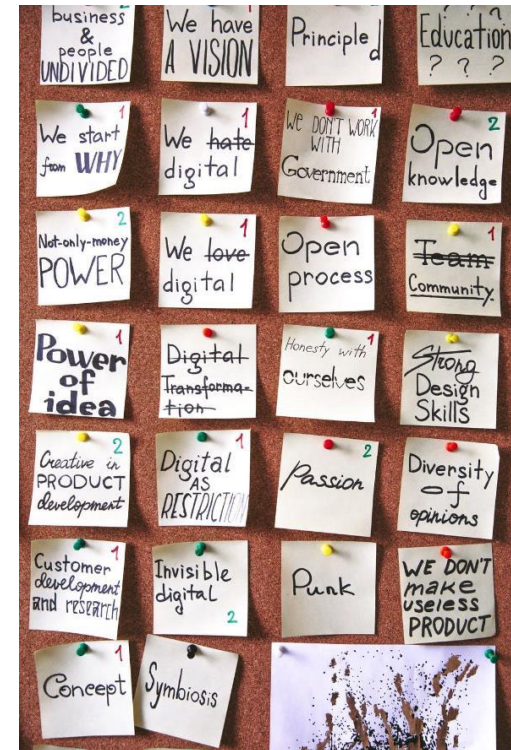 business
&
people
UNDIVIDED
We have
A VISION
Principled
Education
? ? ?
1
We start
from WHY
1
We hate
digital
1
We DON'T WORK
WITH
Government
2
Open
knowledge
2
Not-only-money
POWER
1
We love
digital
Open
process
1
Team
Community
1
Power
of
idea
Digital
Transforma-
tion
1
Honesty with
ourselves
Strong
Design
Skills
2
Creative in
PRODUCT
development
1
Digital
AS
RESTRICTION
2
Passion
Diversity
of
opinions
1
Customer
development
and research
Invisible
digital
2
Punk
WE DON'T
make
useless
PRODUCT
1
Concept
Symbiosis